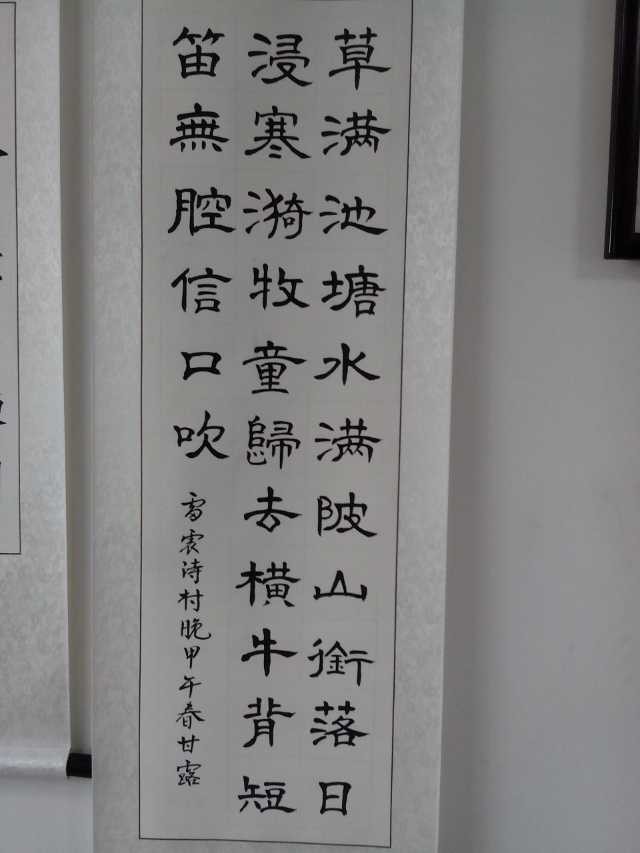 草满池塘水满陂山銜落日
浸寒漪牧童歸去橫牛背短
笛無腔信口吹
雷震诗村晚甲午春甘露